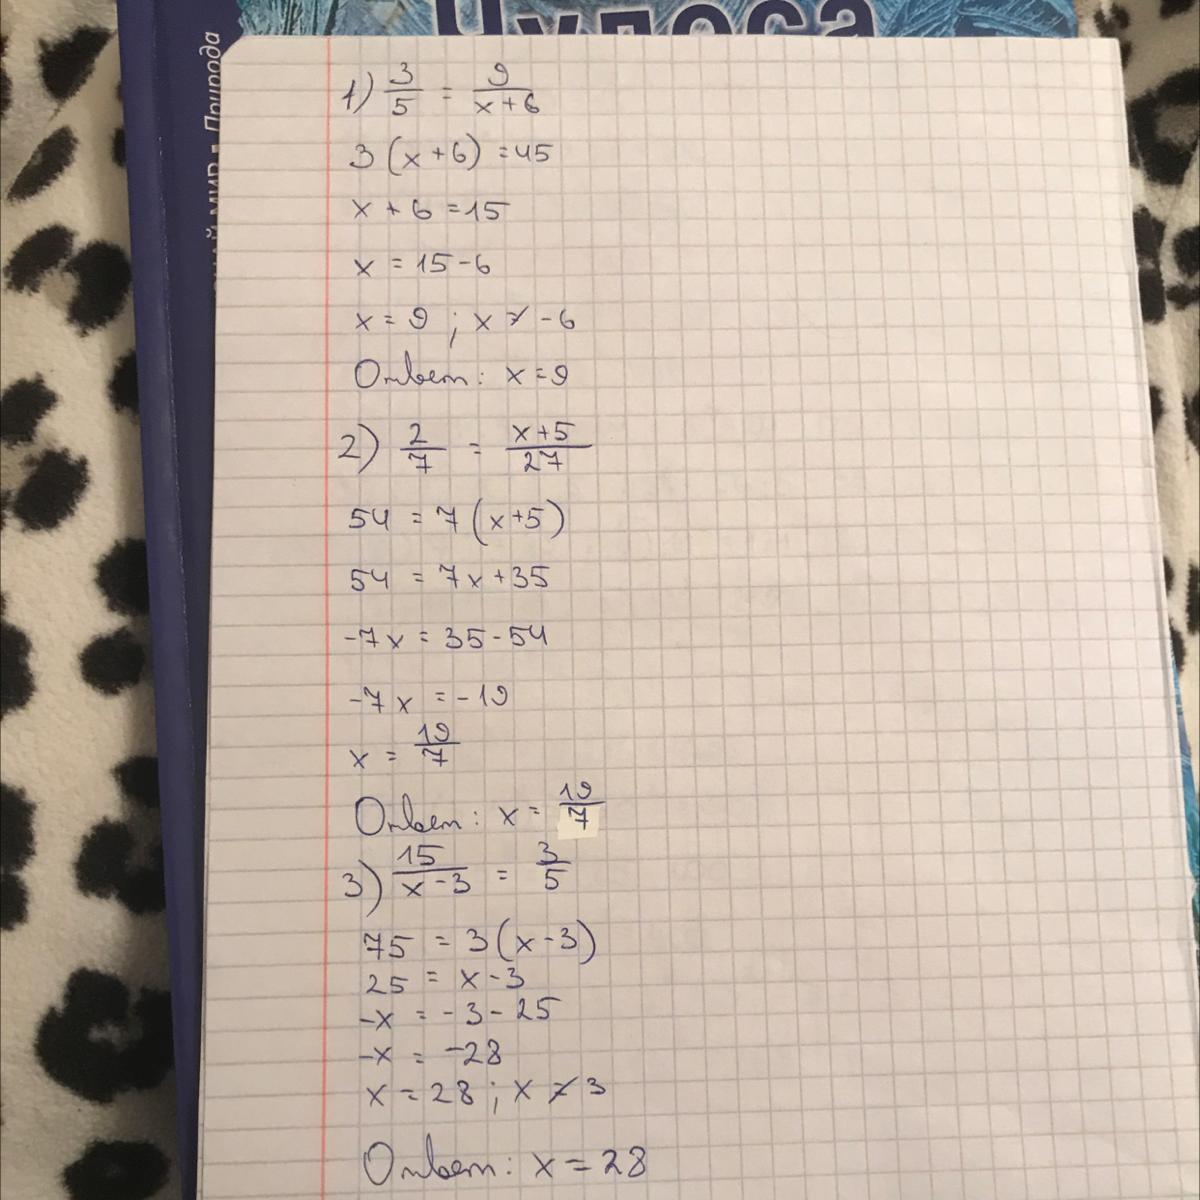 Чудеса
МИР Природа
1) 3/5 = 9/(x+6)
3(x+6) =45
x+6=15
x = 15-6
x=9 ; x ≠ -6
Ответ: x=9
2) 2/7 = (x+5)/27
54 = 7(x+5)
54 = 7x+35
-7x = 35-54
-7x = -19
x = 19/7
Ответ: x = 19/7
3) 15/(x-3) = 3/5
75 = 3(x-3)
25 = x-3
-x = -3-25
-x = -28
x = 28 ; x ≠ 3
Ответ: x = 28